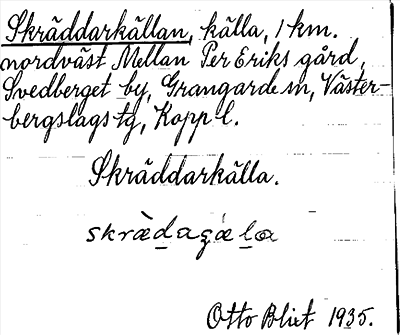 Skräddarkällan, källa, 1 km.
nordväst Mellan Per Eriks gård,
Svedberget by, Grangärde sn, Väster-
bergslags tg, Kopp l.
Skräddarkälla.
Otto Blixt 1935.